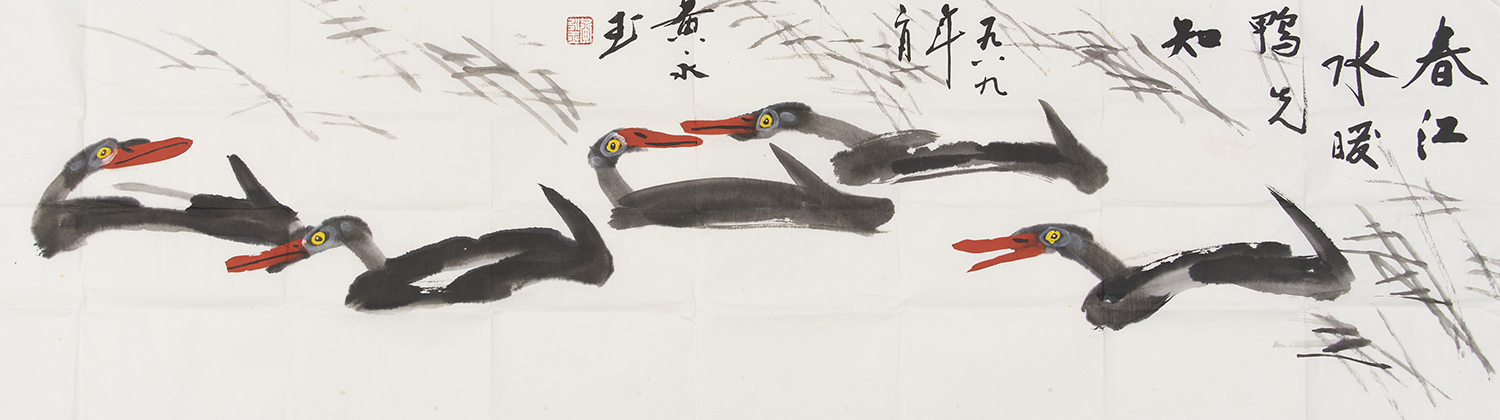 春江
水暖
鴨先
知
一九八九
年
黄永
玉